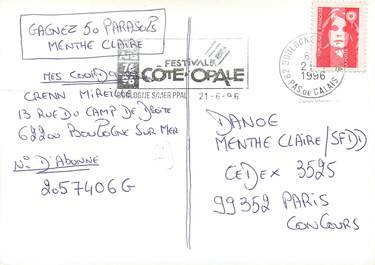 GAGNEZ 50 PARASOLS
MENTHE CLAIRE
MES COORDONNEES
CRENN MIREILLE
13 RUE DU CAMP DE DROITE
62200 BOULOGNE SUR MER
N° D'ABONNE
2057406G
FESTIVAL
CÔTE OPALE
BOULOGNE S/MER PPAL 21-6-96
62 BOULOGNE
1996
PAS DE CALAIS
DANOE
MENTHE CLAIRE/SFDD
CEDEX 3525
99352 PARIS
CONCOURS